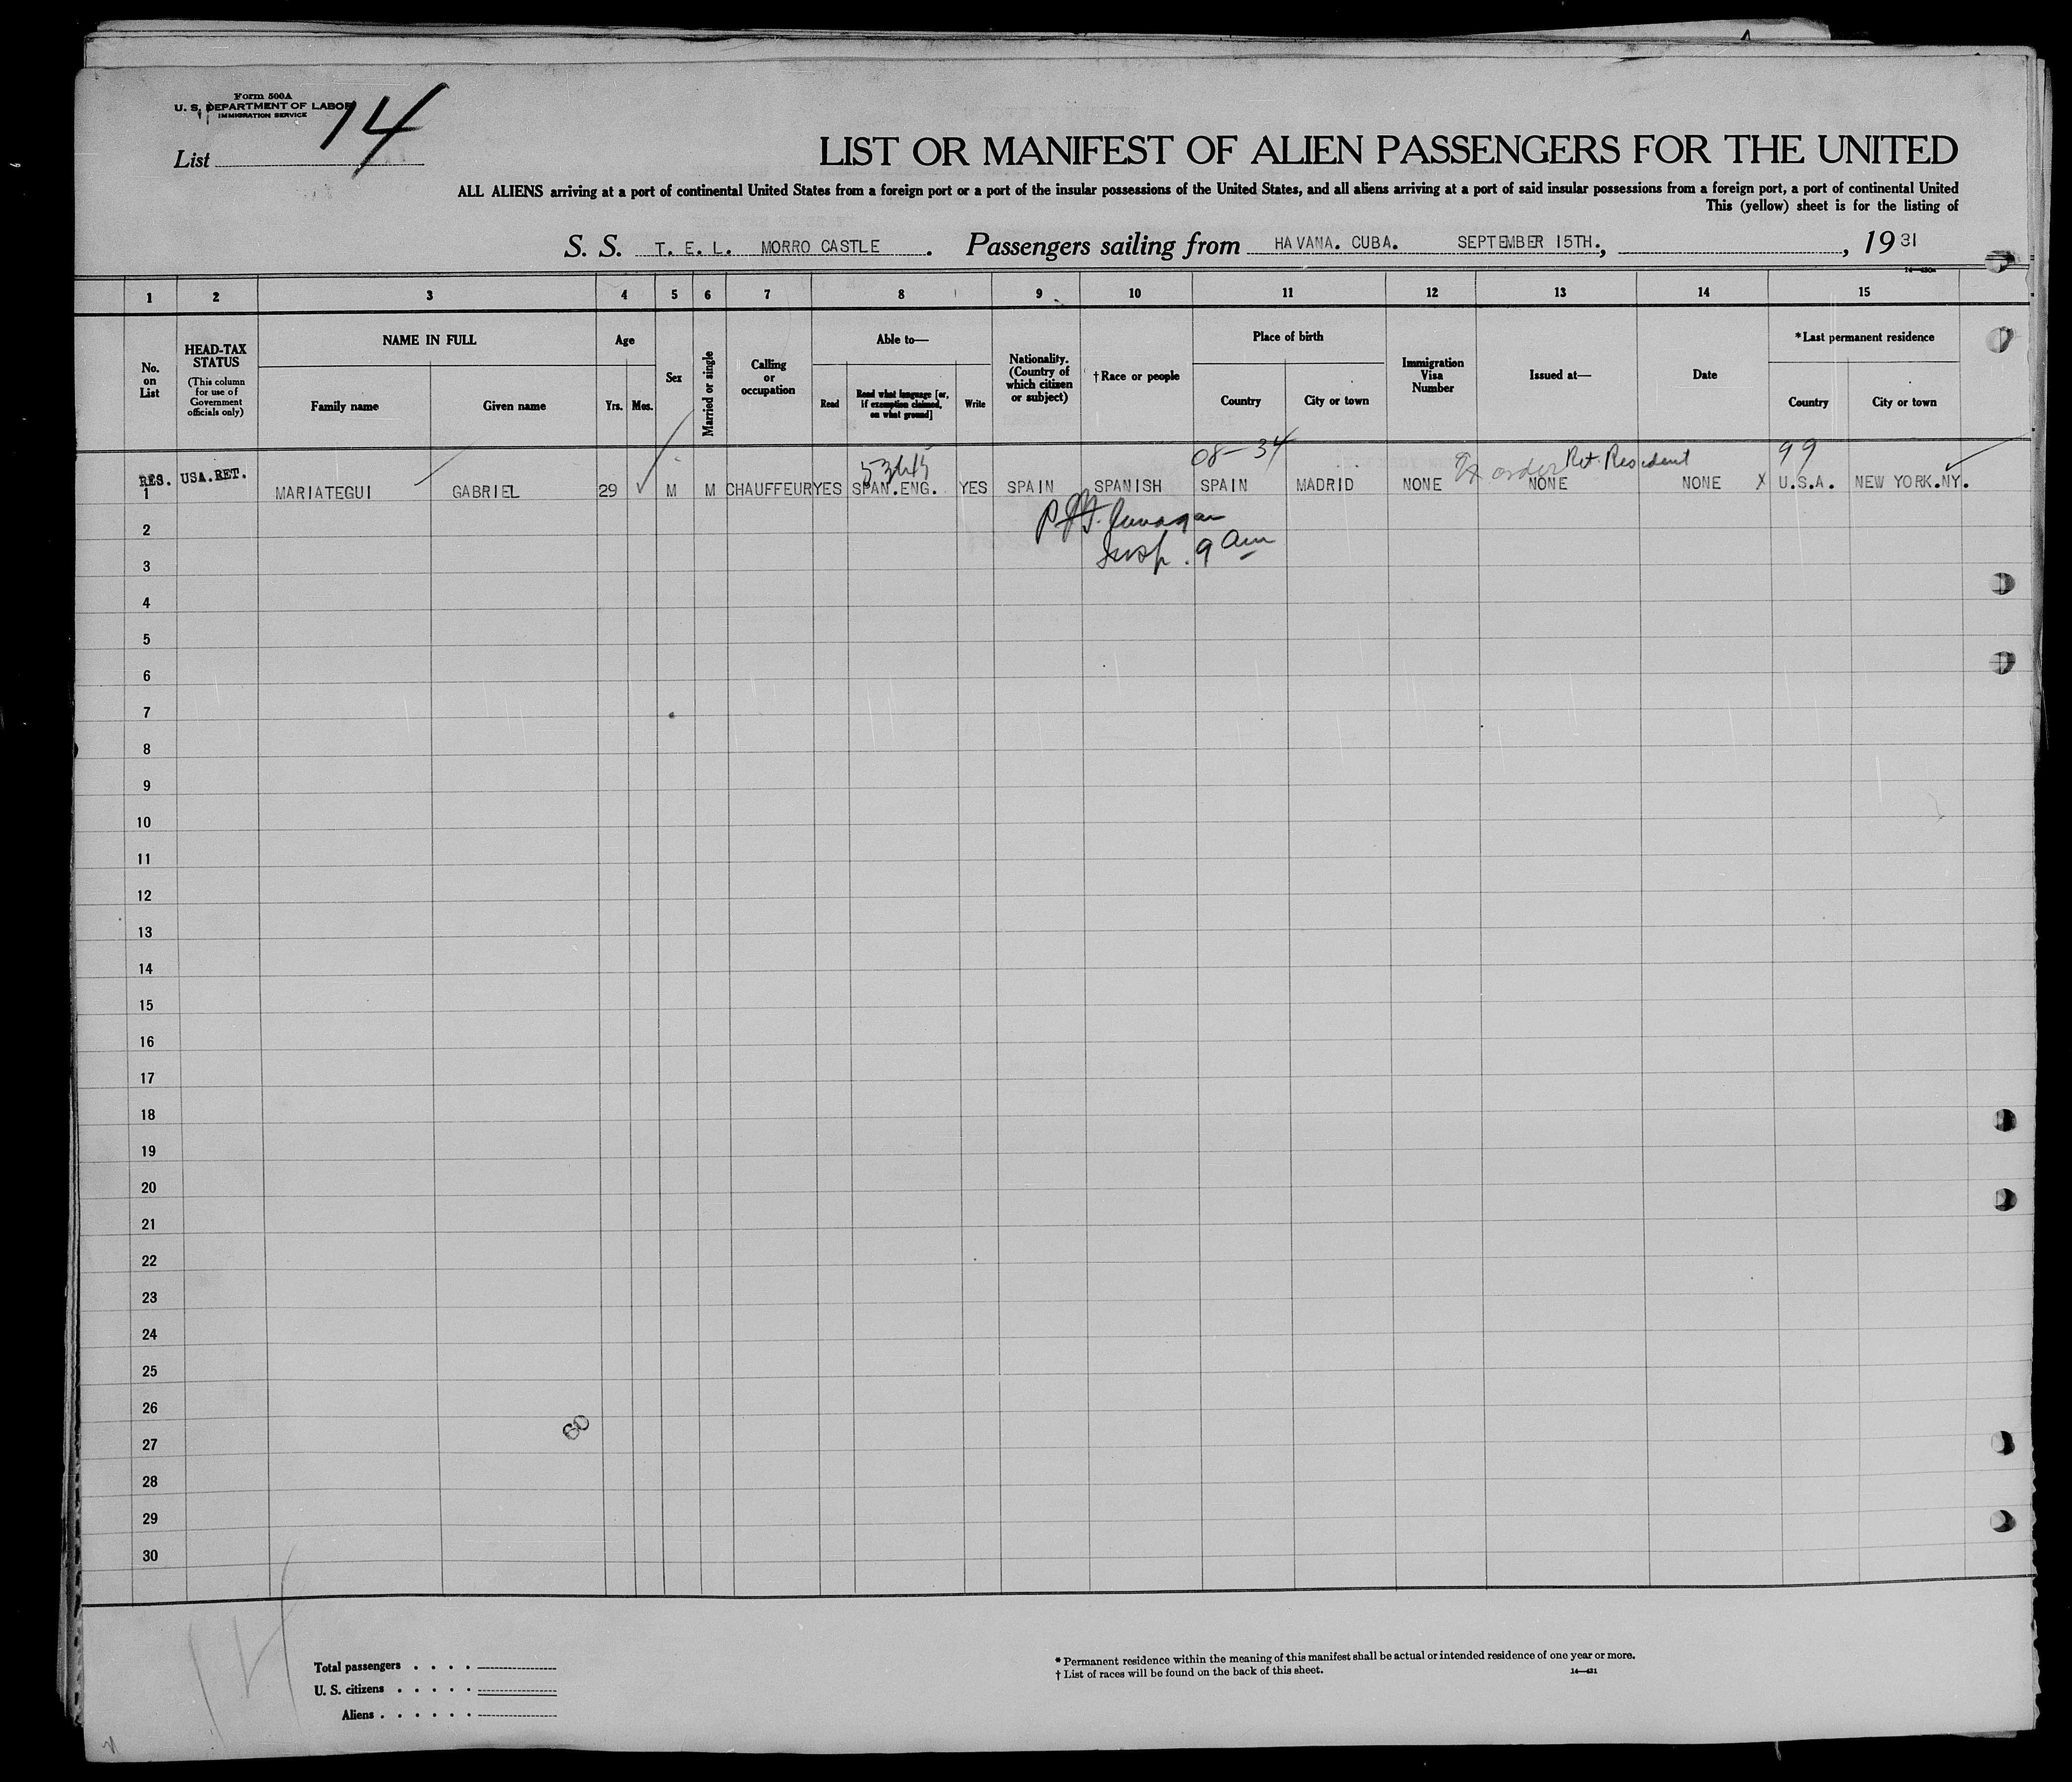 Form 500A
U. S. DEPARTMENT OF LABOR
IMMIGRATION SERVICE
List 14
LIST OR MANIFEST OF ALIEN PASSENGERS FOR THE UNITED
ALL ALIENS arriving at a port of continental United States from a foreign port or a port of the insular possessions of the United States, and all aliens arriving at a port of said insular possessions from a foreign port, a port of continental United
This (yellow) sheet is for the listing of
S. S. T. E. L. MORRO CASTLE . Passengers sailing from HAVANA. CUBA. SEPTEMBER 15TH., , 19 31
14—430a
1 2 3 4 5 6 7 8 9 10 11 12 13 14 15
No. on List
HEAD-TAX STATUS (This column for use of Government officials only)
NAME IN FULL
Family name Given name
Age
Yrs. Mos.
Sex
Married or single
Calling or occupation
Able to—
Read Read what language [or, if exemption claimed, on what ground] Write
Nationality. (Country of which citizen or subject)
†Race or people
Place of birth
Country City or town
Immigration Visa Number
Issued at—
Date
*Last permanent residence
Country City or town
08-34 Ret. Resident 99
RES. USA.RET.
1 MARIATEGUI GABRIEL 29 M M CHAUFFEUR YES SPAN.ENG. YES SPAIN SPANISH SPAIN MADRID NONE order NONE NONE X U.S.A. NEW YORK.NY.
2
Insp. 9 am
3
4
5
6
7
8
9
10
11
12
13
14
15
16
17
18
19
20
21
22
23
24
25
26
60
27
28
29
30
14
Total passengers . . . .
U. S. citizens . . . . .
Aliens . . . . . .
* Permanent residence within the meaning of this manifest shall be actual or intended residence of one year or more.
† List of races will be found on the back of this sheet.
14—431